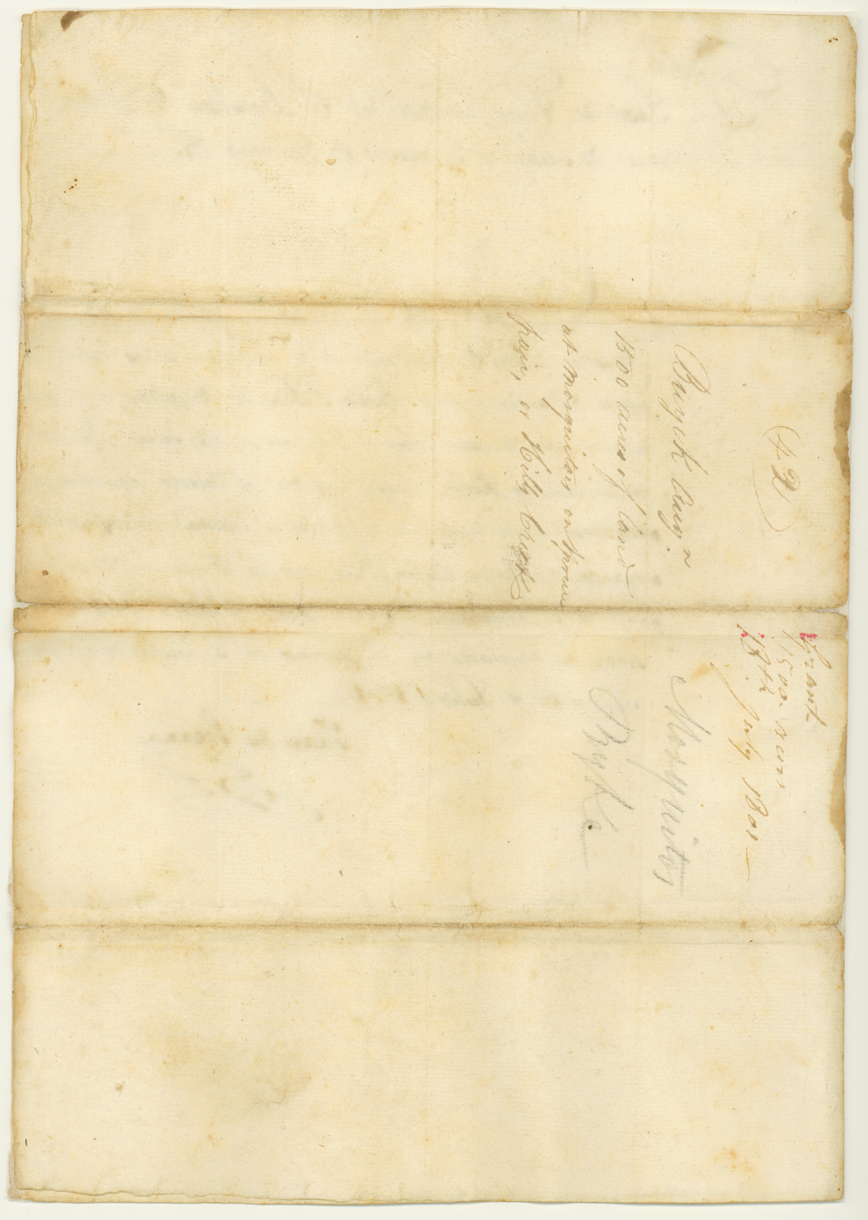 (42)
Buyck Aug.n
1500 acres of land
at Mosquitos on Spruce
or Hilly Creek
Grant
1500. acres
18th July 1801 —
Mosquitos
Buyck